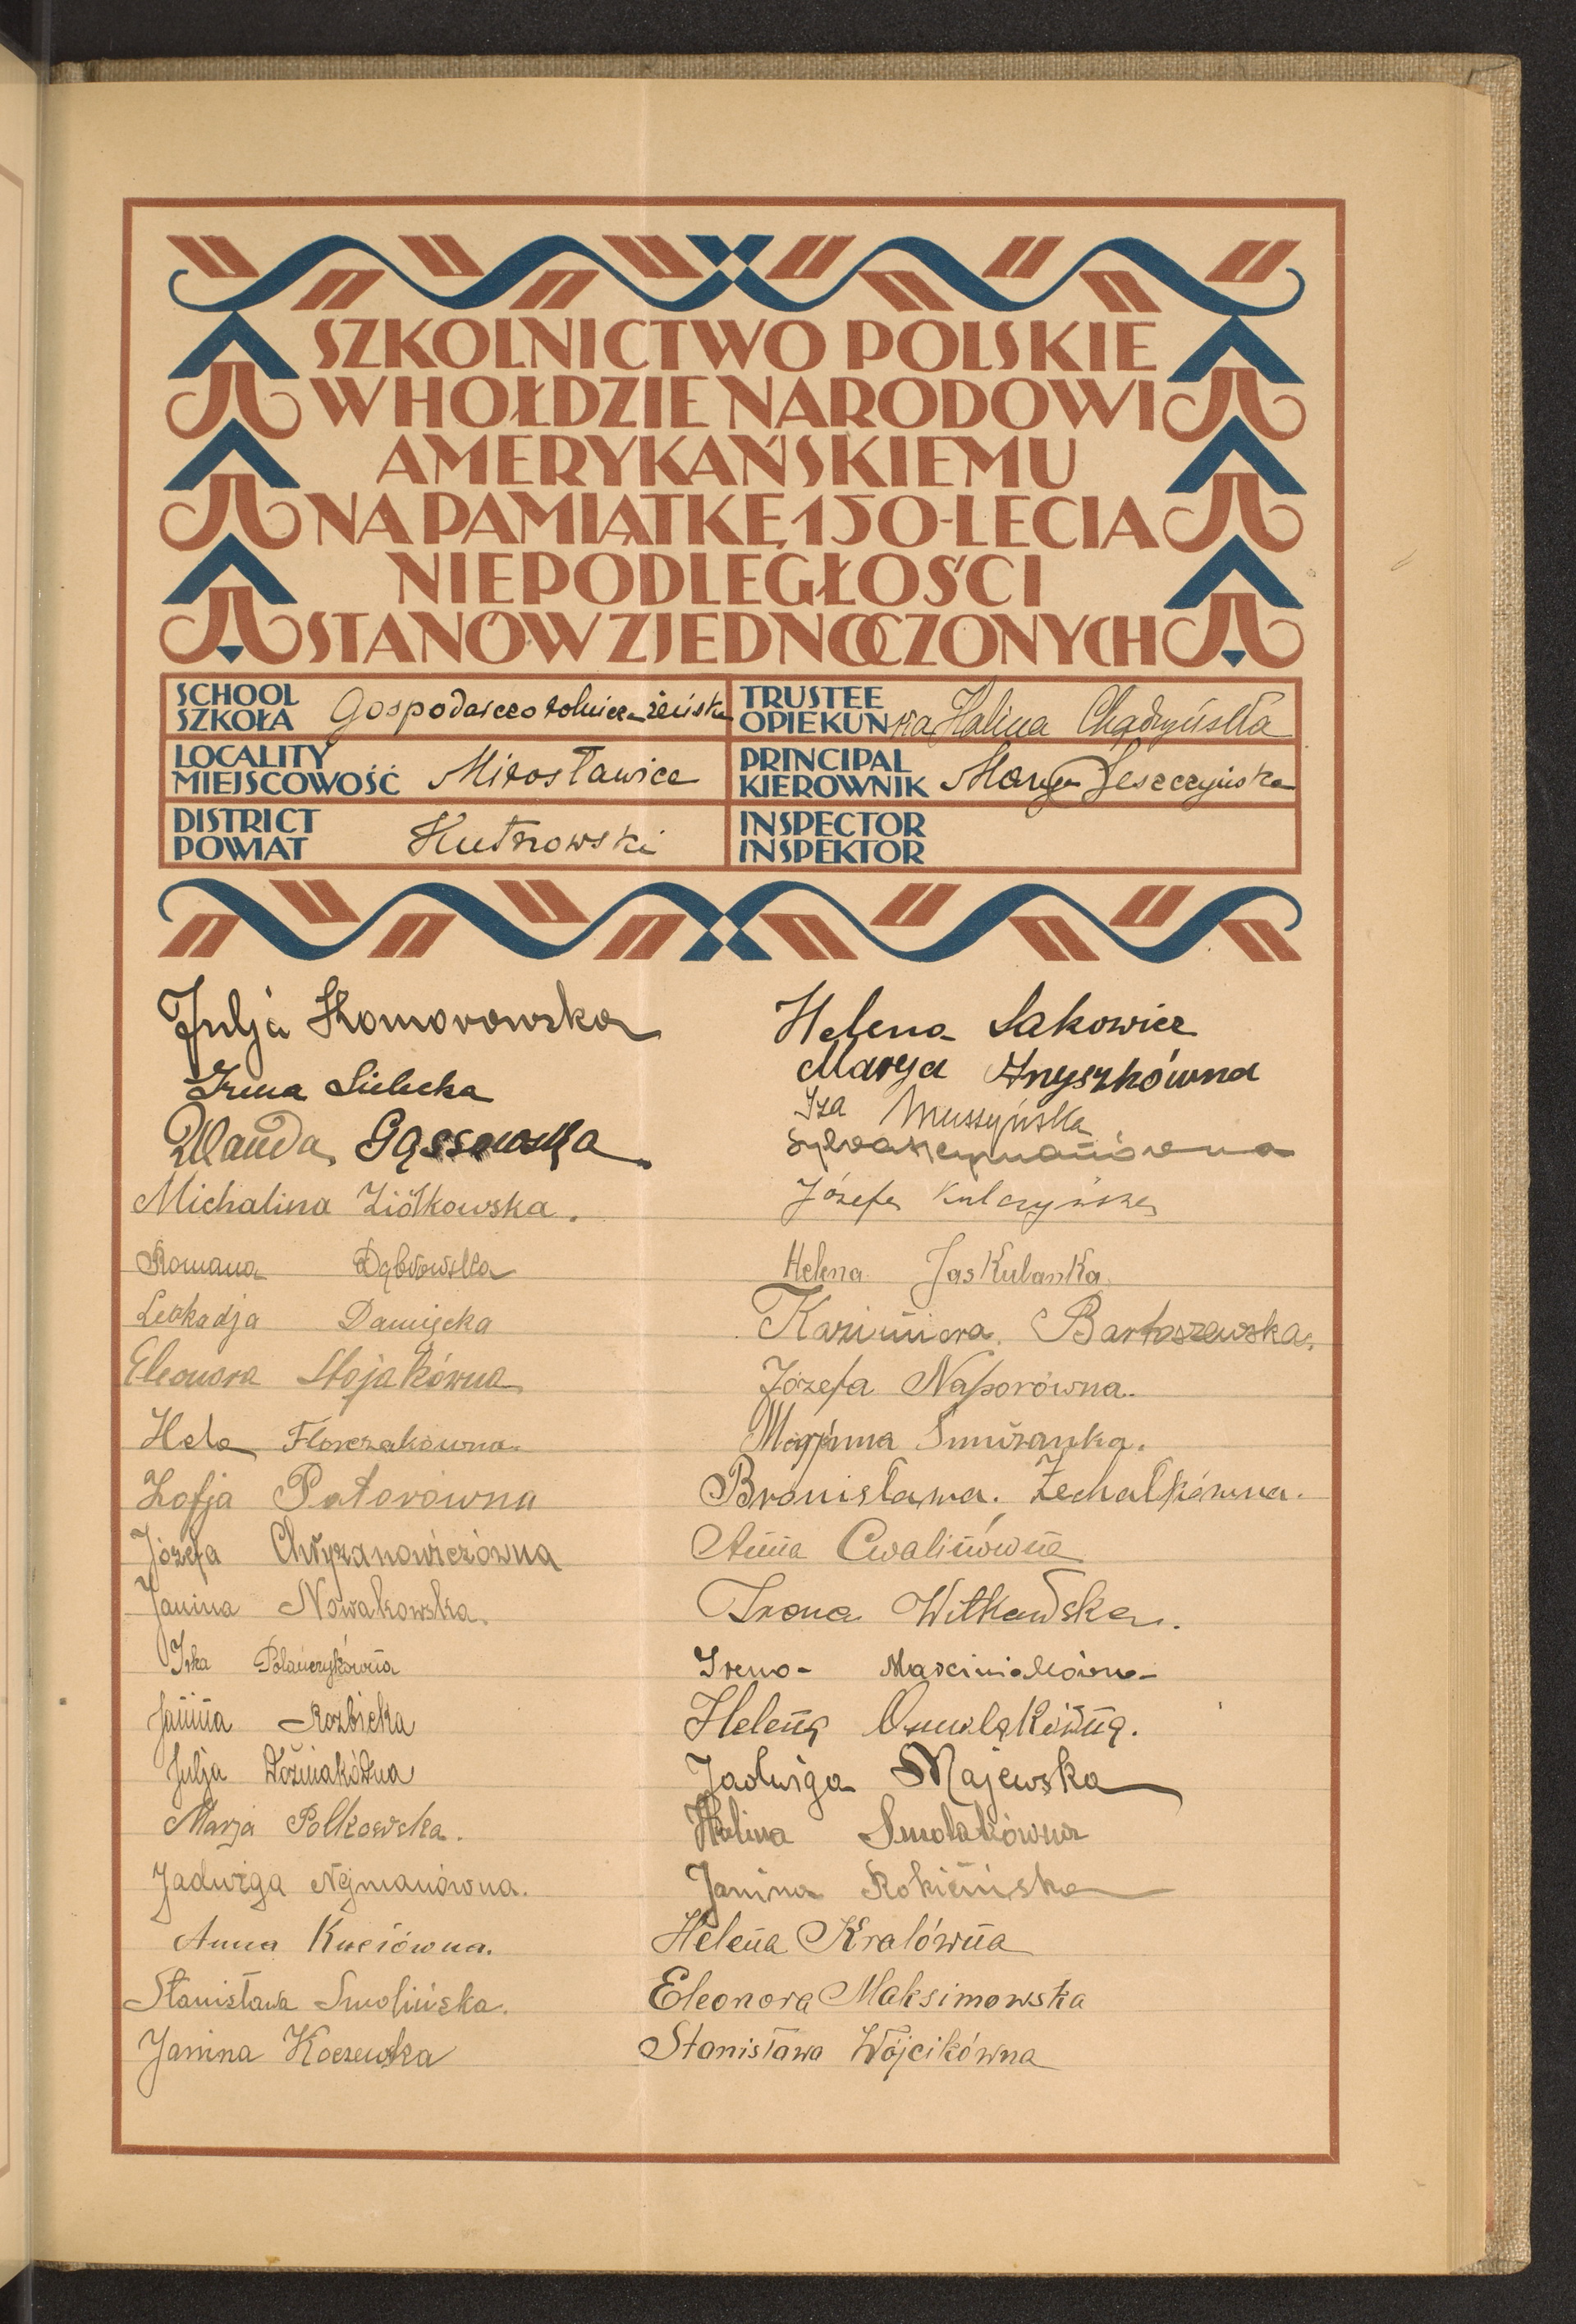 SZKOLNICTWO POLSKIE
W HOŁDZIE NARODOWI
AMERYKAŃSKIEMU
NA PAMIĄTKĘ 150-LECIA
NIEPODLEGŁOŚCI
STANÓW ZJEDNOCZONYCH
SCHOOL
SZKOŁA Gospodarczo rolnicza żeńska
TRUSTEE
OPIEKUNka Halina Chądzyńska
LOCALITY
MIEJSCOWOŚĆ Mirosławice
PRINCIPAL
KIEROWNIK Marya Leszczyńska
DISTRICT
POWIAT Kutnowski
INSPECTOR
INSPEKTOR
Julja Komorowska
Irena Sielicka
Wanda Gąssowska
Michalina Ziółkowska.
Romana Dąbrowska
Leokadja Damięcka
Eleonora Stojakówna
Hela Florczakówna.
Zofja Patorówna
Józefa Chryzanowiczówna
Janina Nowakowska.
Irka Polańczykówna
Janina Rozbicka
Julja Woźniakówna
Marja Polkowska.
Jadwiga Nejmanówna.
Anna Kuciówna.
Stanisława Smolińska.
Janina Koczewska
Helena Sakowicz
Marya Hryszkówna
Iza Muszyńska
Józefa Kulczyńska
Helena Jaskulanka
Kazimiera Bartoszewska.
Józefa Naporówna.
Maryanna
Bronisława. Żechalkówna.
Anna Cwalinówna
Irena Witkowska.
Irena Marciniakówna
Helena
Jadwiga Majewska
Halina Smolakówna
Janina Rokicińska
Helena Kralówna
Eleonora Maksimowska
Stanisława Wójcikówna